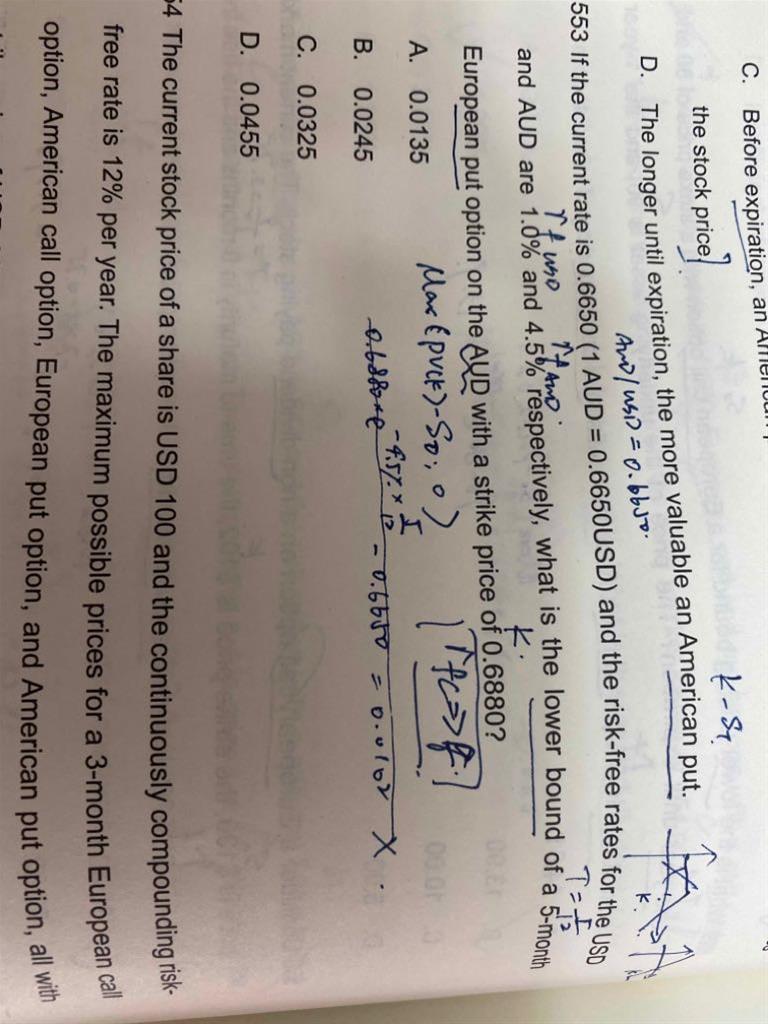 C. Before expiration, an
the stock price.
D. The longer until expiration, the more valuable an American put.
K - ST
AUD/USD = 0.6650.
553 If the current rate is 0.6650 (1 AUD = 0.6650USD) and the risk-free rates for the USD
rf USD rf AUD.
T = 5/12
and AUD are 1.0% and 4.5% respectively, what is the lower bound of a 5-month
K.
European put option on the AUD with a strike price of 0.6880?
A. 0.0135
Max {PV(K) - S0; 0)
B. 0.0245
0.6880 * e -4.5% x 5/12 - 0.6650 = 0.0102 X.
C. 0.0325
D. 0.0455
54 The current stock price of a share is USD 100 and the continuously compounding risk-
free rate is 12% per year. The maximum possible prices for a 3-month European call
option, American call option, European put option, and American put option, all with